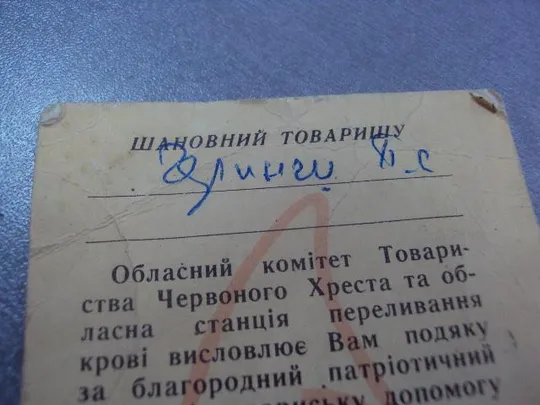 ШАНОВНИЙ ТОВАРИШУ
Обласний комітет Товари-
ства Червоного Хреста та об-
ласна станція переливання
крові висловлює Вам подяку
за благородний патріотичний
допомогу